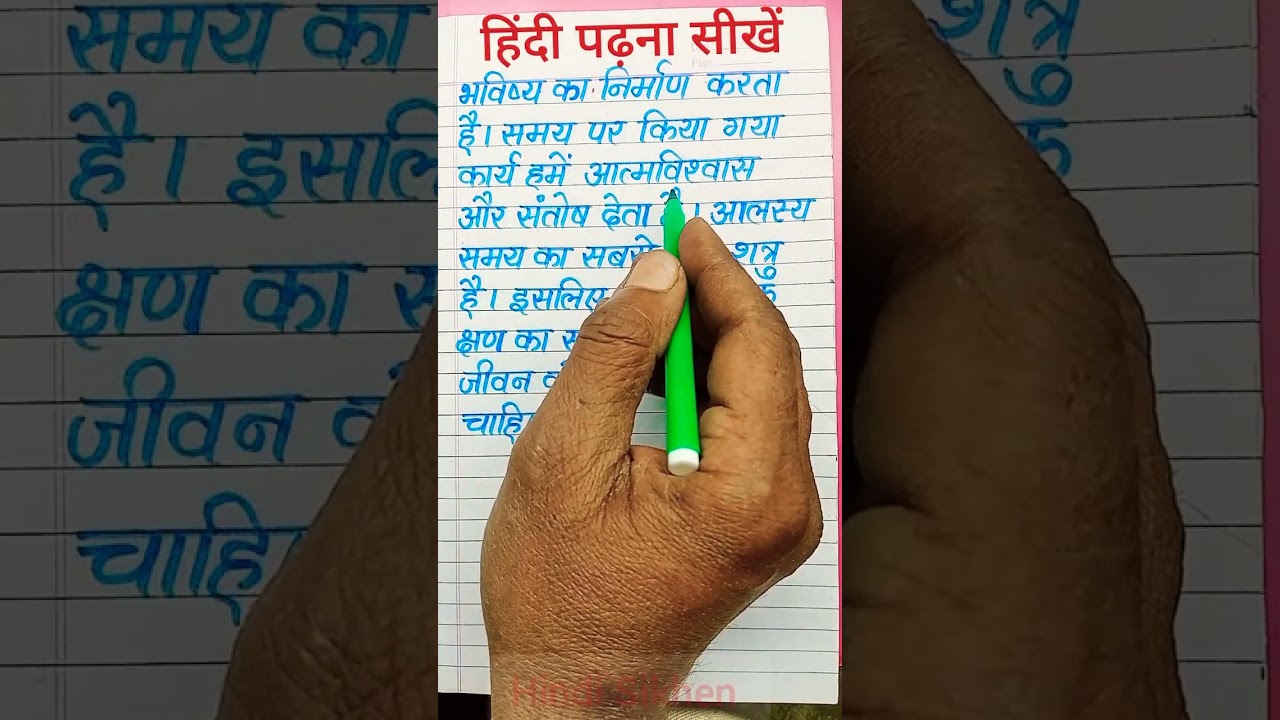 हिंदी पढ़ना सीखें
भविष्य का निर्माण करता
है। समय पर किया गया
कार्य हमें आत्मविश्वास
और संतोष देता है। आलस्य
समय का शत्रु
है। इसलिए
क्षण का
जीवन
Hindi Sikhen